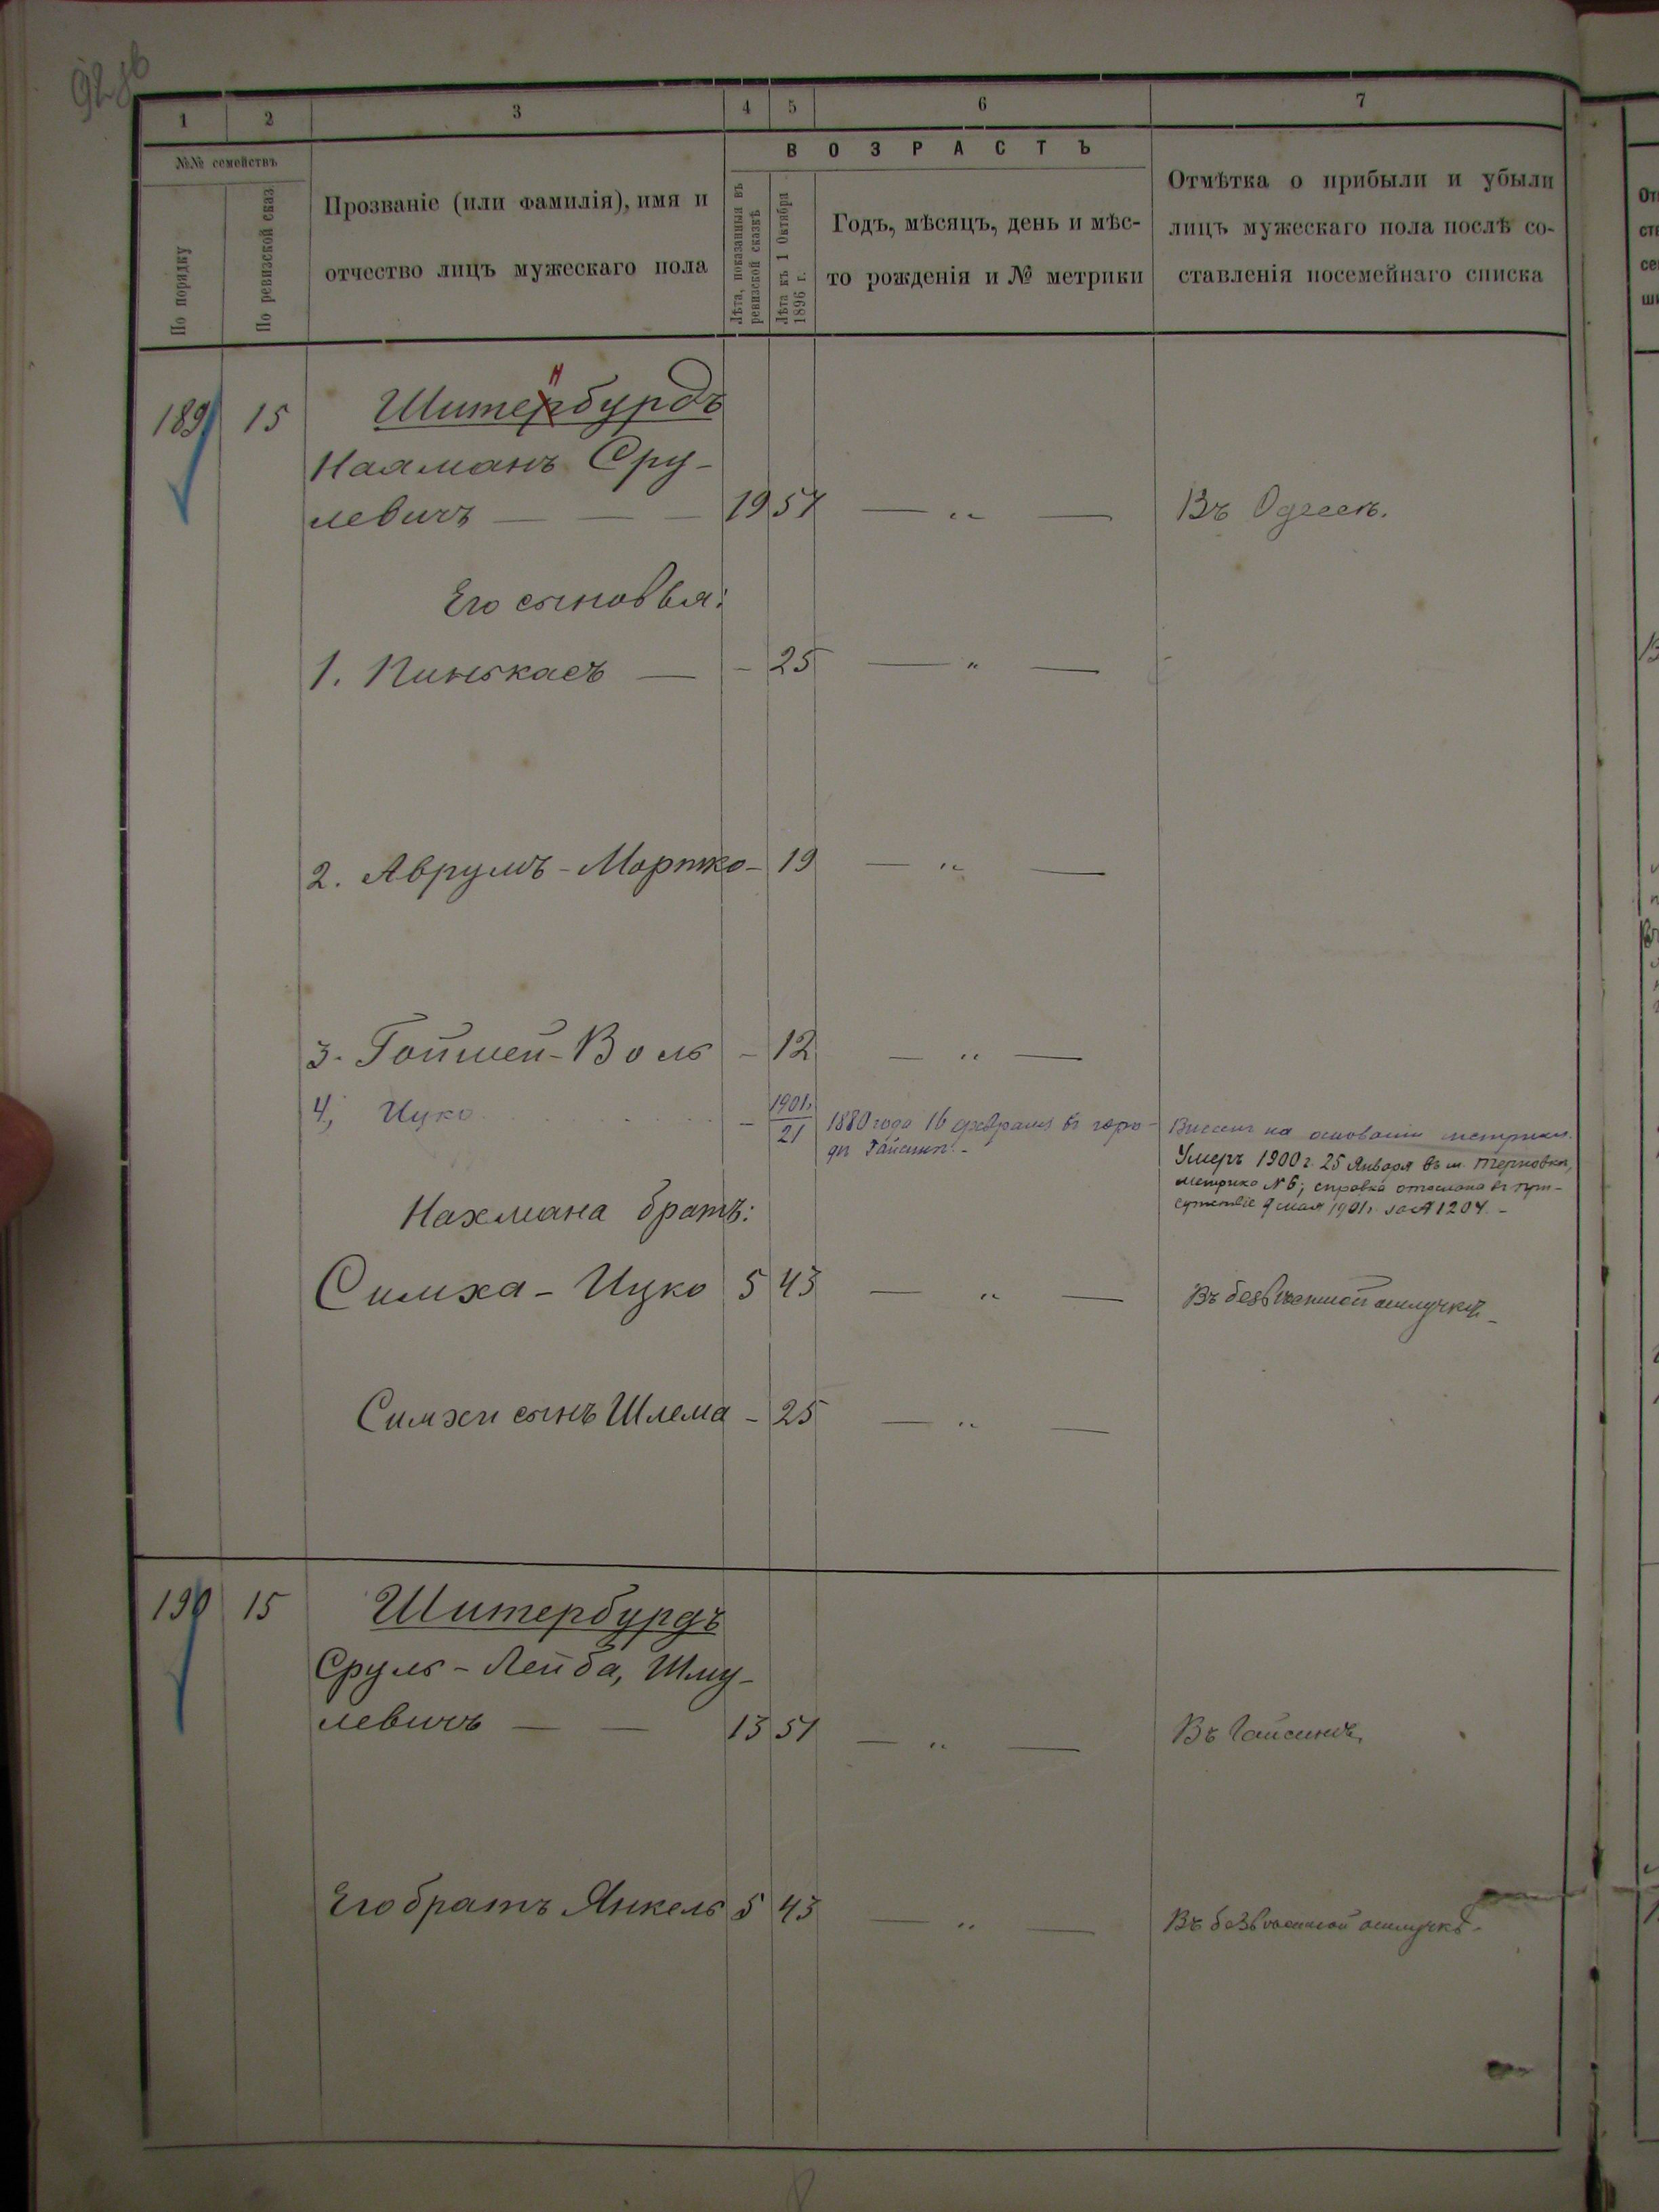 1 2 3 4 5 6 7
№№ семействъ
По порядку
По ревизской сказ.
Прозваніе (или фамилія), имя и
отчество лицъ мужескаго пола
ВОЗРАСТЪ
Лѣта, показанныя въ
ревизской сказкѣ
Лѣта къ 1 Октября
1896 г.
Годъ, мѣсяцъ, день и мѣс-
то рожденія и № метрики
Отмѣтка о прибыли и убыли
лицъ мужескаго пола послѣ со-
ставленія посемейнаго списка
н
189 15 Шитербурдъ
Нахманъ Сру-
левичъ — — — 19 57 — „ — Въ Одессѣ.
Его сыновья:
1. Пинькасъ — - 25 — „ —
2. Аврумъ-Мортко - 19 — „ —
3. Гойшей-Воль - 12 — „ —
4, Ицко - 1901г. 21 1880 года 16 февраля въ горо-
дѣ Гайсинѣ. -
на основаніи метрики.
Умеръ 1900 г. 25 Января въ м. Терновкѣ,
метрика № 6; справка отослана въ при-
сутствіе 9 мая 1901г. за № 1204. -
Нахмана братъ:
Симха-Ицко 5 43 — „ — Въ безвѣстной отлучкѣ. -
Симхи сынъ Шлема - 25 — „ —
190 15 Шитербурдъ
Сруль-Лейба, Шму-
левичъ — — 13 51 — „ — Въ Гайсинѣ.
Его братъ Янкель 5 43 — „ — Въ безвѣстной отлучкѣ.